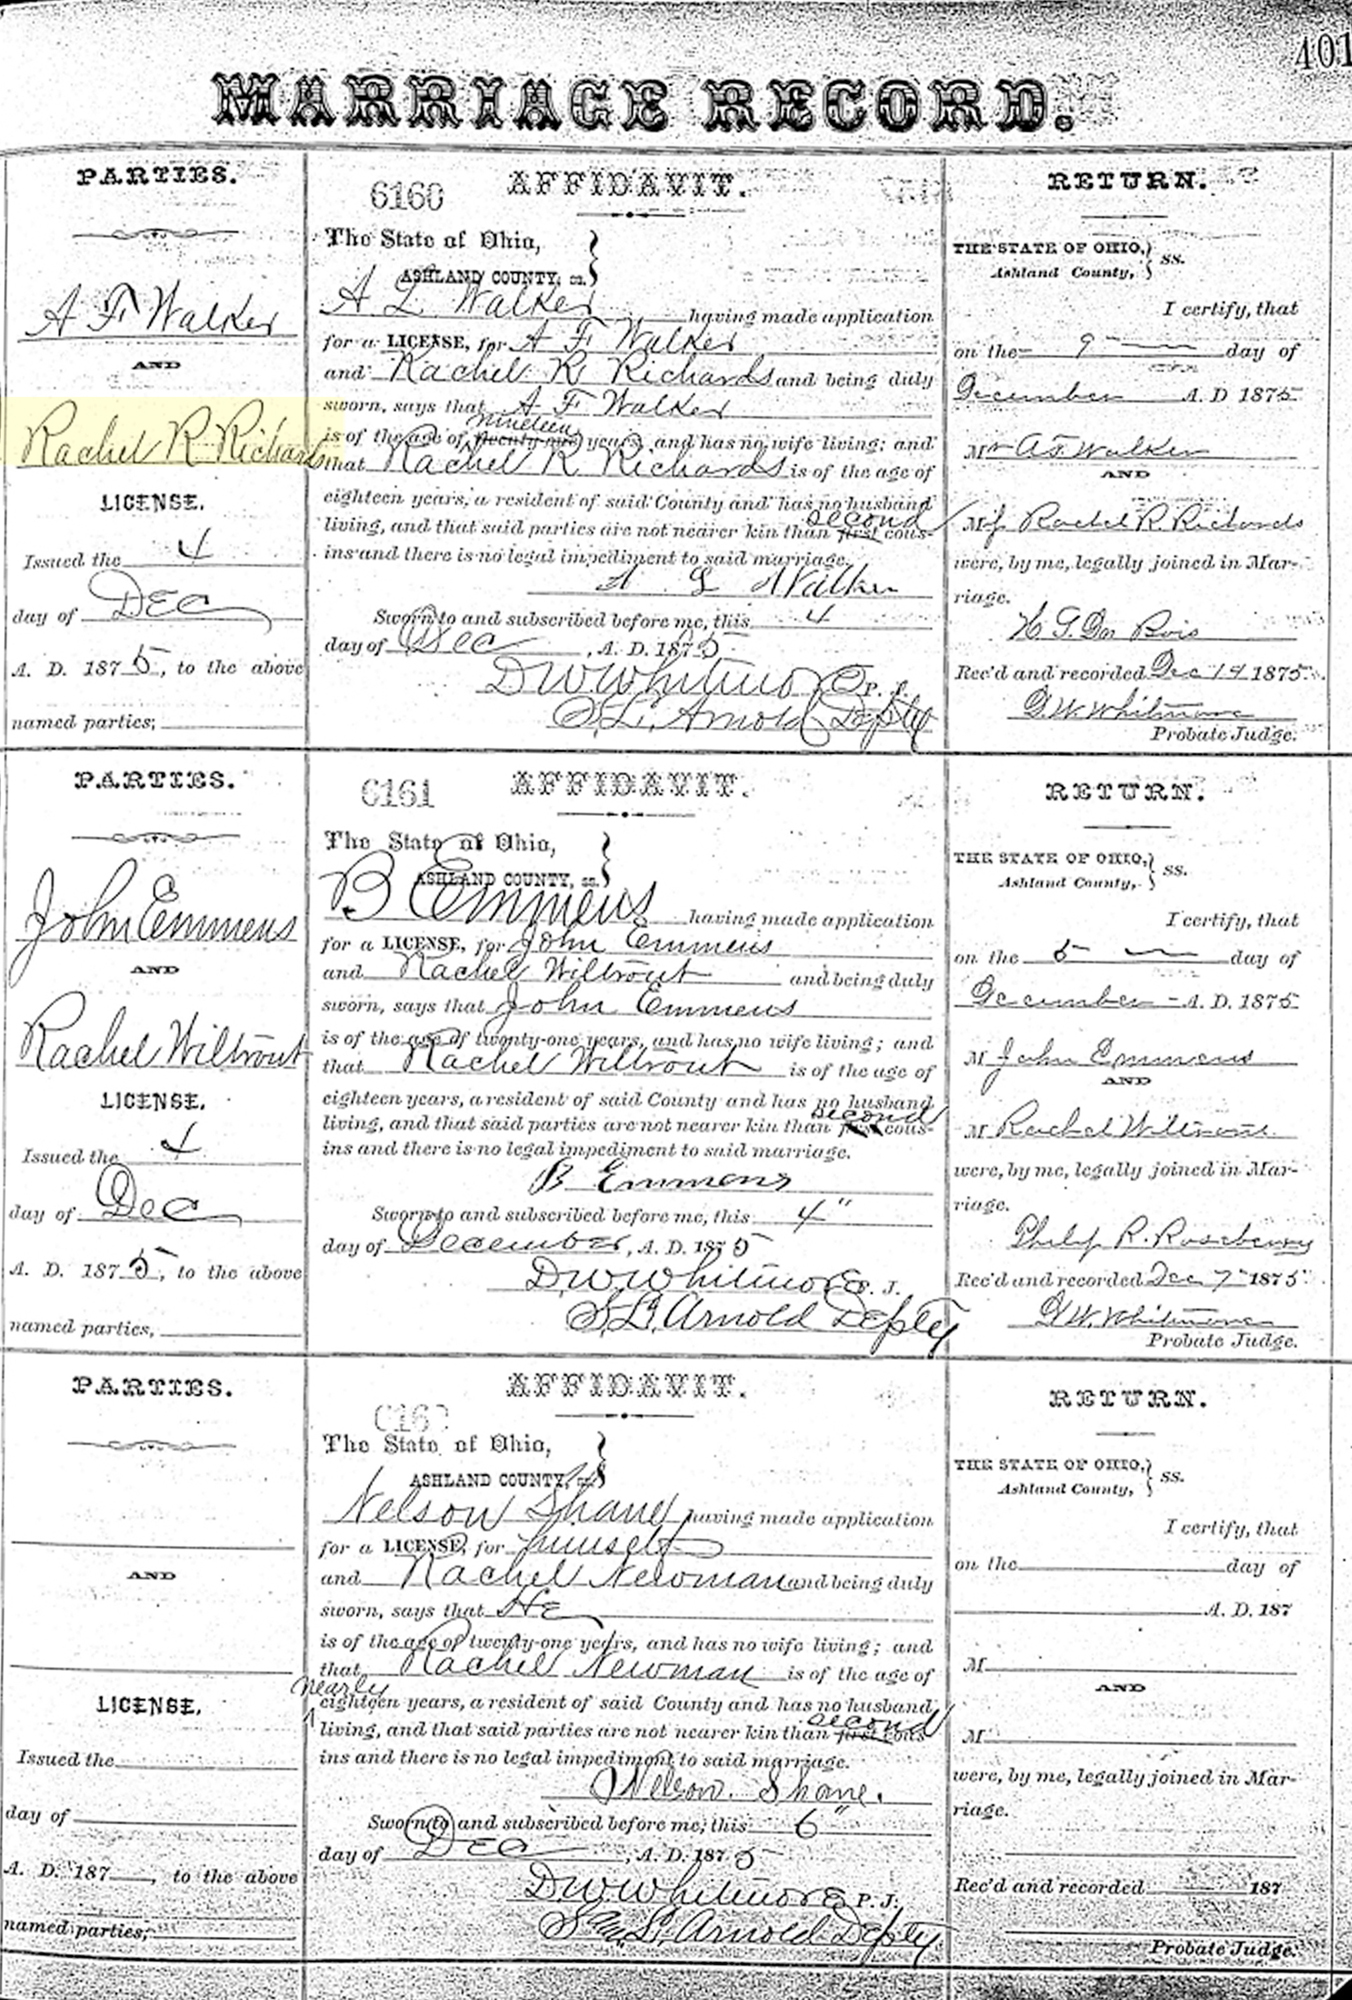 401
MARRIAGE RECORD.
PARTIES.
A F Walker
AND
Rachel R Richards
LICENSE.
Issued the 4
day of Dec
A. D. 1875, to the above
named parties;
6160
AFFIDAVIT.
The State of Ohio,
ASHLAND COUNTY, ss.
A L Walker having made application
for a LICENSE, for A F Walker
and Rachel R Richards and being duly
sworn, says that A F Walker
nineteen
is of the age of twenty-one years, and has no wife living; and
that Rachel R Richards is of the age of
eighteen years, a resident of said County and has no husband
second
living, and that said parties are not nearer kin than first cous-
ins and there is no legal impediment to said marriage.
A L Walker
Sworn to and subscribed before me, this 4
day of Dec, A. D. 1875
D W Whitmore P. J.
S. L. Arnold Depty
RETURN.
THE STATE OF OHIO,
Ashland County, ss.
I certify, that
on the 9 day of
December A. D 1875
Mr A. F. Walker
AND
M Rachel R. Richards
were, by me, legally joined in Mar-
riage.
H G.
Rec'd and recorded Dec 14 1875.
G. W. Whitmore
Probate Judge.
PARTIES.
John Emmens
AND
Rachel Wiltrout
LICENSE.
Issued the 4
day of Dec
A. D. 1875, to the above
named parties,
6161
AFFIDAVIT.
The State of Ohio,
ASHLAND COUNTY, ss.
B Emmens having made application
for a LICENSE, for John Emmens
and Rachel Wiltrout and being duly
sworn, says that John Emmens
is of the age of twenty-one years, and has no wife living; and
that Rachel Wiltrout is of the age of
eighteen years, a resident of said County and has no husband
second
living, and that said parties are not nearer kin than first cous-
ins and there is no legal impediment to said marriage.
B Emmens
Sworn to and subscribed before me, this 4"
day of December, A. D. 1875
D. W Whitmore P. J.
S. L. Arnold Depty
RETURN.
THE STATE OF OHIO,
Ashland County, ss.
I certify, that
on the 5 day of
December A. D. 1875
M John Emmens
AND
M Rachel Wiltrout
were, by me, legally joined in Mar-
riage.
Philip R. Roseberry
Rec'd and recorded Dec 7" 1875
G. W. Whitmore
Probate Judge.
PARTIES.
AND
LICENSE.
Issued the
day of
A. D. 187 , to the above
named parties;
AFFIDAVIT.
The State of Ohio,
ASHLAND COUNTY, ss.
Nelson Shane having made application
for a LICENSE, for himself
and Rachel Newman and being duly
sworn, says that He
is of the age of twenty-one years, and has no wife living; and
that Rachel Newman is of the age of
nearly
eighteen years, a resident of said County and has no husband
second
living, and that said parties are not nearer kin than first cous-
ins and there is no legal impediment to said marriage.
Nelson Shane.
Sworn to and subscribed before me, this 6"
day of Dec, A. D. 1875
D W Whitmore P. J.
L. Arnold Depty
RETURN.
THE STATE OF OHIO,
Ashland County, ss.
I certify, that
on the day of
A. D. 187
M
AND
M
were, by me, legally joined in Mar-
riage.
Rec'd and recorded 187
Probate Judge.